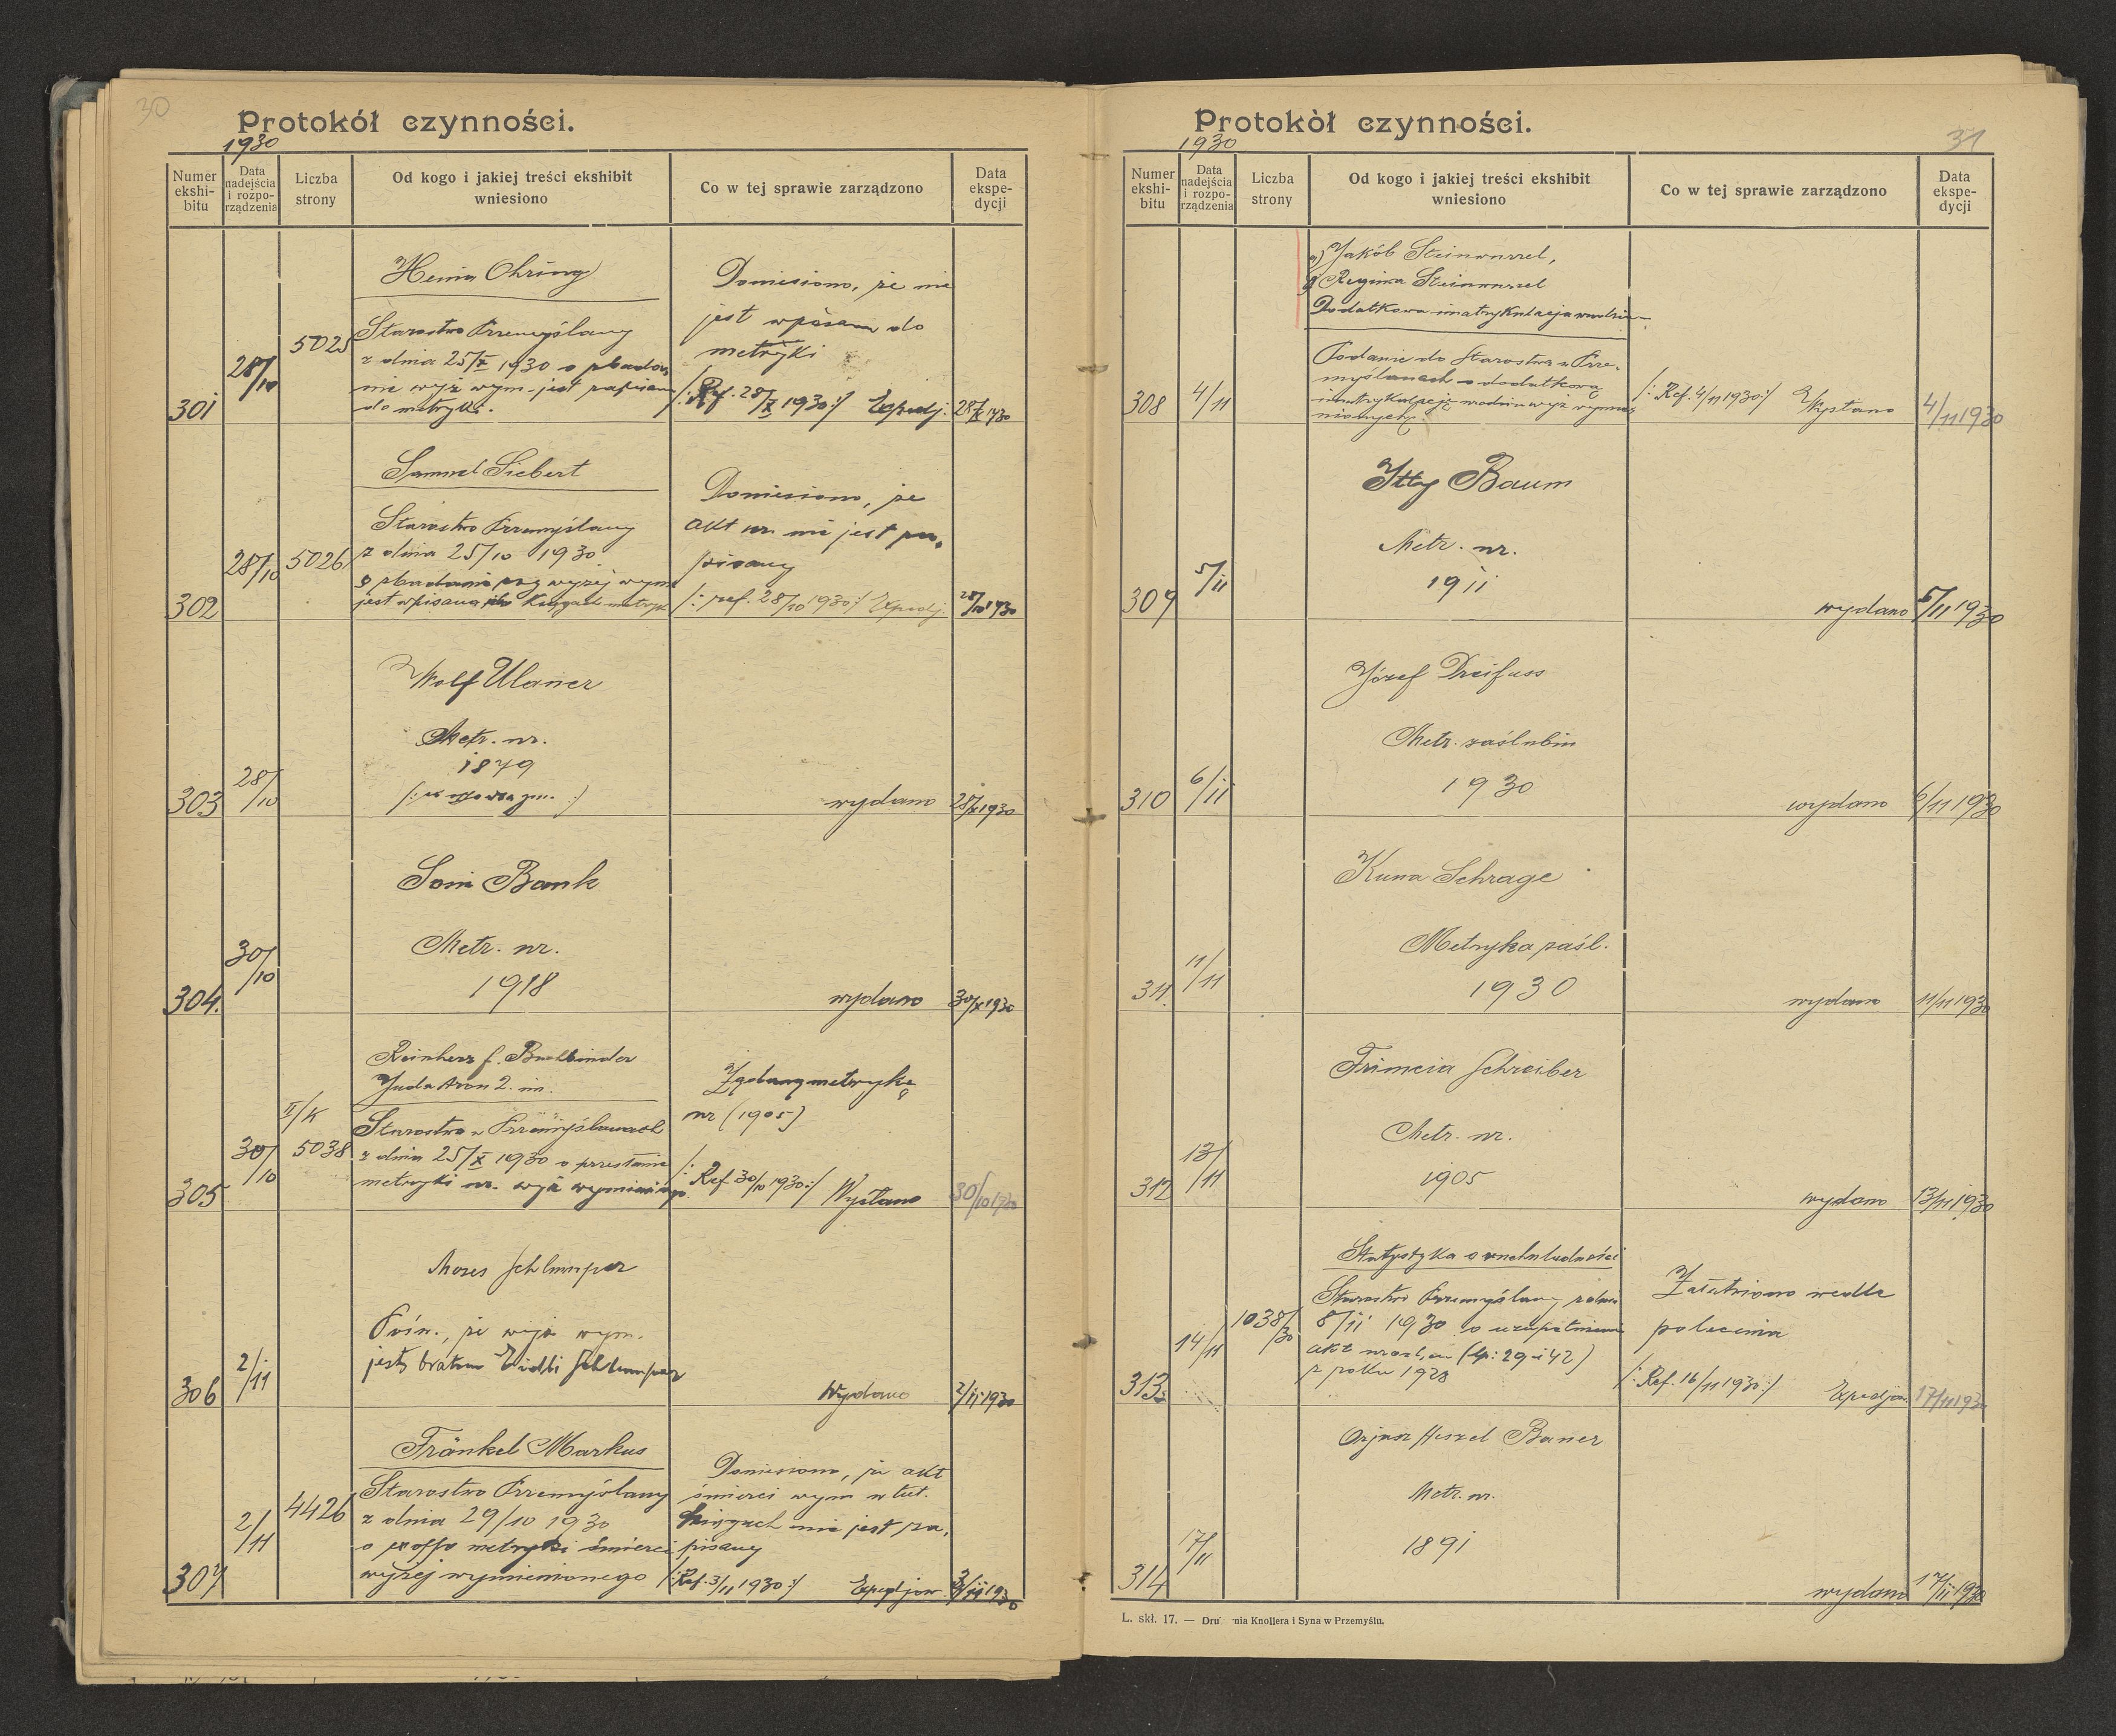 30
Protokół czynności.
1930
Numer ekshi-bitu
Data nadejścia i rozpo-rządzenia
Liczba strony
Od kogo i jakiej treści ekshibit wniesiono
Co w tej sprawie zarządzono
Data ekspe-dycji
Henia Ohring
Starostwo Przemyślany
z dnia 25/X 1930 o zbada
nie wyż wym. jest zapisana
do metryki.
301
28/10
5025
Doniesiono, że nie
jest wpisana do
metryki
/: Ref. 28/X 1930 :/ Expedj.
28/X 1930
Samuel Siebert
Starostwo Przemyślany
z dnia 25/10 1930
o zbadanie czy wyżej wym.
jest wpisana do księgach metryk
302
28/10
5026
Doniesiono, że
akt ur. nie jest za-
pisany
/: ref. 28/10 1930 :/ Expedj.
28/10 1930
Wolf Ulaner
Metr. ur.
1879
303
28/10
wydano
28/X 1930
Soni Bank
Metr. ur.
1918
304.
30/10
wydano
30/X 1930
Reinherz f. Buchbinder
Juda Aron 2. im.
Starostwo w Przemyślanach
z dnia 25/X 1930 o przesłanie
metryki ur. wyż wymienionego
305
30/10
II/K
5038
metrykę
ur (1905)
/: Ref. 30/10 1930 :/ Wysłano
30/10 1930
Moses Schlumper
że wyż wym.
jest bratem Schlumper
306
2/11
Wydano
2/11 1930
Fränkel Markus
Starostwo Przemyślany
z dnia 29/10 1930
o metryki śmierci
wyżej wymienionego
307
2/11
4426
Doniesiono, że akt
śmierci wym w tut.
księgach nie jest za-
pisany
/: Ref. 3/11 1930 :/ Expedjow.
3/11 1930
Protokòł czynności.
31
1930
Numer ekshi-bitu
Data nadejścia i rozpo-rządzenia
Liczba strony
Od kogo i jakiej treści ekshibit wniesiono
Co w tej sprawie zarządzono
Data ekspe-dycji
a) Jakób Steinwurzel,
Regina Steinwurzel
Dodatkowa imatrykulacja urodzin
Podanie do Starostwa w Prze-
myślanach o dodatkową
imatrykulację urodzin wyż wymie-
nionych.
308
4/11
/: Ref. 4/11 1930 :/ Wysłano
4/11 1930
Itty Baum
Metr. ur.
1911
309
5/11
wydano
5/11 1930
Józef Dreifuss
Metr. zaślubin
1930
310
6/11
wydano
6/11 1930
Kuna Schrage
Metryka zaśl.
1930
311.
11/11
wydano
11/11 1930
Frimcia Schreiber
Metr. ur.
1905
312
13/11
wydano
13/11 1930
Statystyka o ruchu ludności
Starostwo Przemyślany z dnia
8/11 1930 o uzupełnienie
akt urodzin (lp: 29 i 42)
z roku 1928
313
14/11
1038/30
Załatwiono wedle
polecenia
/: Ref. 16/11 1930 :/ Expedjow.
17/11 1930
Heszel Bauer
Metr. ur.
1891
314
17/11
wydano
17/11 1930
L. skł. 17. — Dru nia Knollera i Syna w Przemyślu.